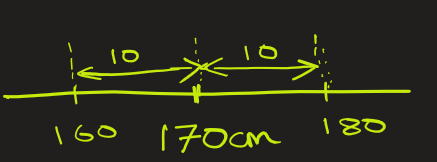 10 10
160 170cm 180